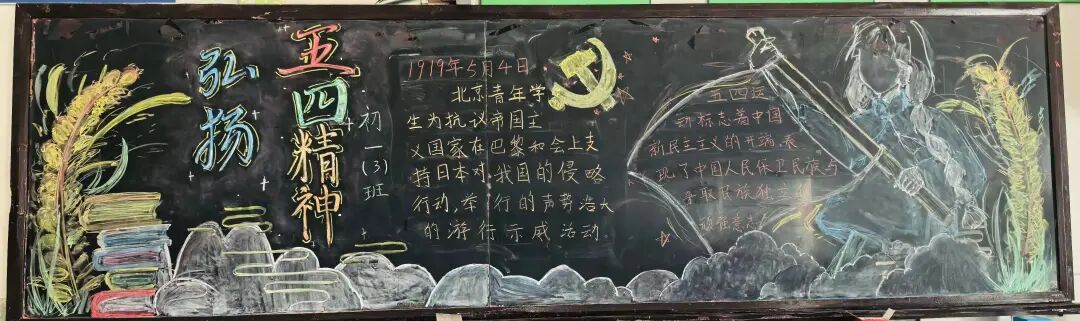 弘扬
五四精神
初一(3)班
1919年5月4日
北京青年学
生为抗议帝国主
义国家在巴黎和会上支
持日本对我国的侵略
行动,举行的声势浩大
的游行示威活动
五四运
动标志着中国
新民主主义的开端,表
现了中国人民保卫民族与
争取民族独立
顽强意志